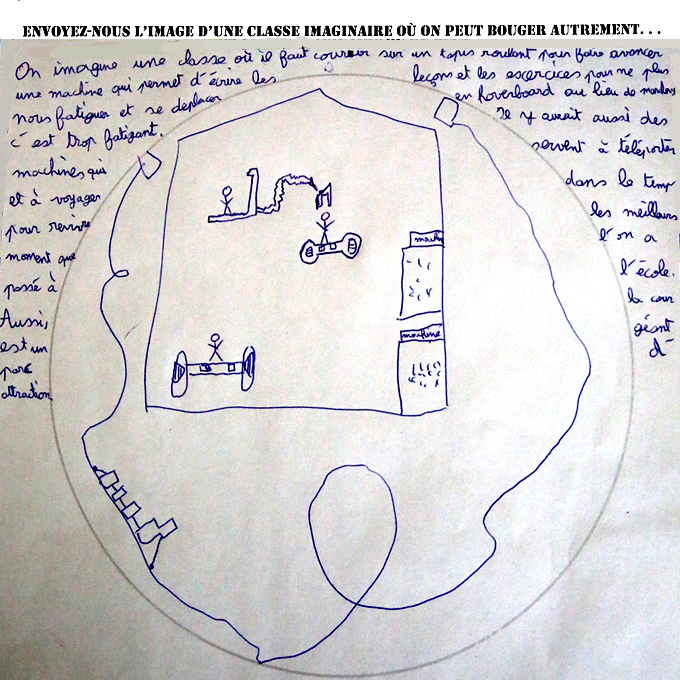 ENVOYEZ-NOUS L'IMAGE D'UNE CLASSE IMAGINAIRE OÙ ON PEUT BOUGER AUTREMENT...
On imagine une classe où il faut courrir sur un tapis roullant pour faire avancer
une machine qui permet d'écrire les leçons et les exercices pour ne plus
nous fatiguer et se deplacer en hoverboard au lieu de
c'est trop fatigant. Il y aurait aussi des
machines qui servent à téléporter
et à voyager dans le temp
pour revivre les meilleurs
moment que l'on a
passé à l'école.
Aussi, la cour
est un géant
parc d'
attraction.
machine